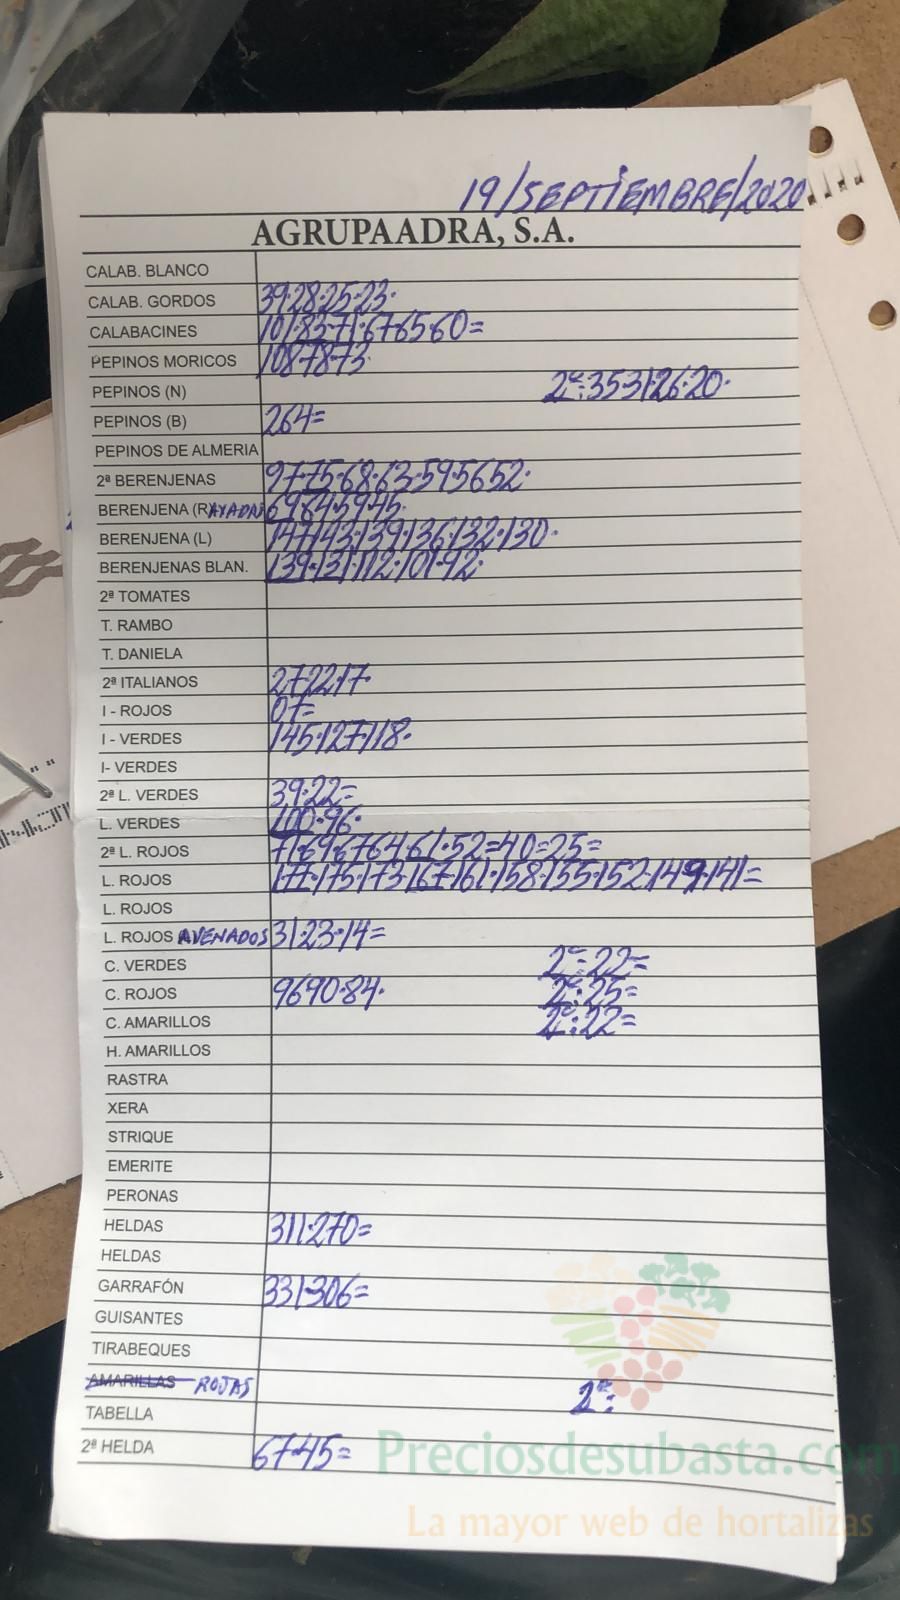 19/SEPTIEMBRE/2020
AGRUPAADRA, S.A.
CALAB. BLANCO
CALAB. GORDOS 39·28·25·23·
CALABACINES 101·83·71·67·65·60=
PEPINOS MORICOS 108·78·73·
PEPINOS (N) 2ª:35·31·26·20·
PEPINOS (B) 264=
PEPINOS DE ALMERIA
2ª BERENJENAS 97·75·68·63·59·56·52·
BERENJENA (RAYADA) 69·64·59·45·
BERENJENA (L) 147·143·139·136·132·130·
BERENJENAS BLAN. 139·131·112·101·92·
2ª TOMATES
T. RAMBO
T. DANIELA
2ª ITALIANOS 27·22·17·
I - ROJOS 07=
I - VERDES 145·127·118·
I- VERDES
2ª L. VERDES 39·22=
L. VERDES 100·96·
2ª L. ROJOS 71·69·67·64·61·52=40=25=
L. ROJOS 177·175·173·167·161·158·155·152·149·141=
L. ROJOS
L. ROJOS AVENADOS 31·23·14=
C. VERDES 2ª:22=
C. ROJOS 96·90·84· 2ª:25=
C. AMARILLOS 2ª:22=
H. AMARILLOS
RASTRA
XERA
STRIQUE
EMERITE
PERONAS
HELDAS 311·270=
HELDAS
GARRAFÓN 331·306=
GUISANTES
TIRABEQUES
AMARILLAS ROJAS 2ª:
TABELLA
2ª HELDA 67·45=
Preciosdesubasta.com
La mayor web de hortalizas